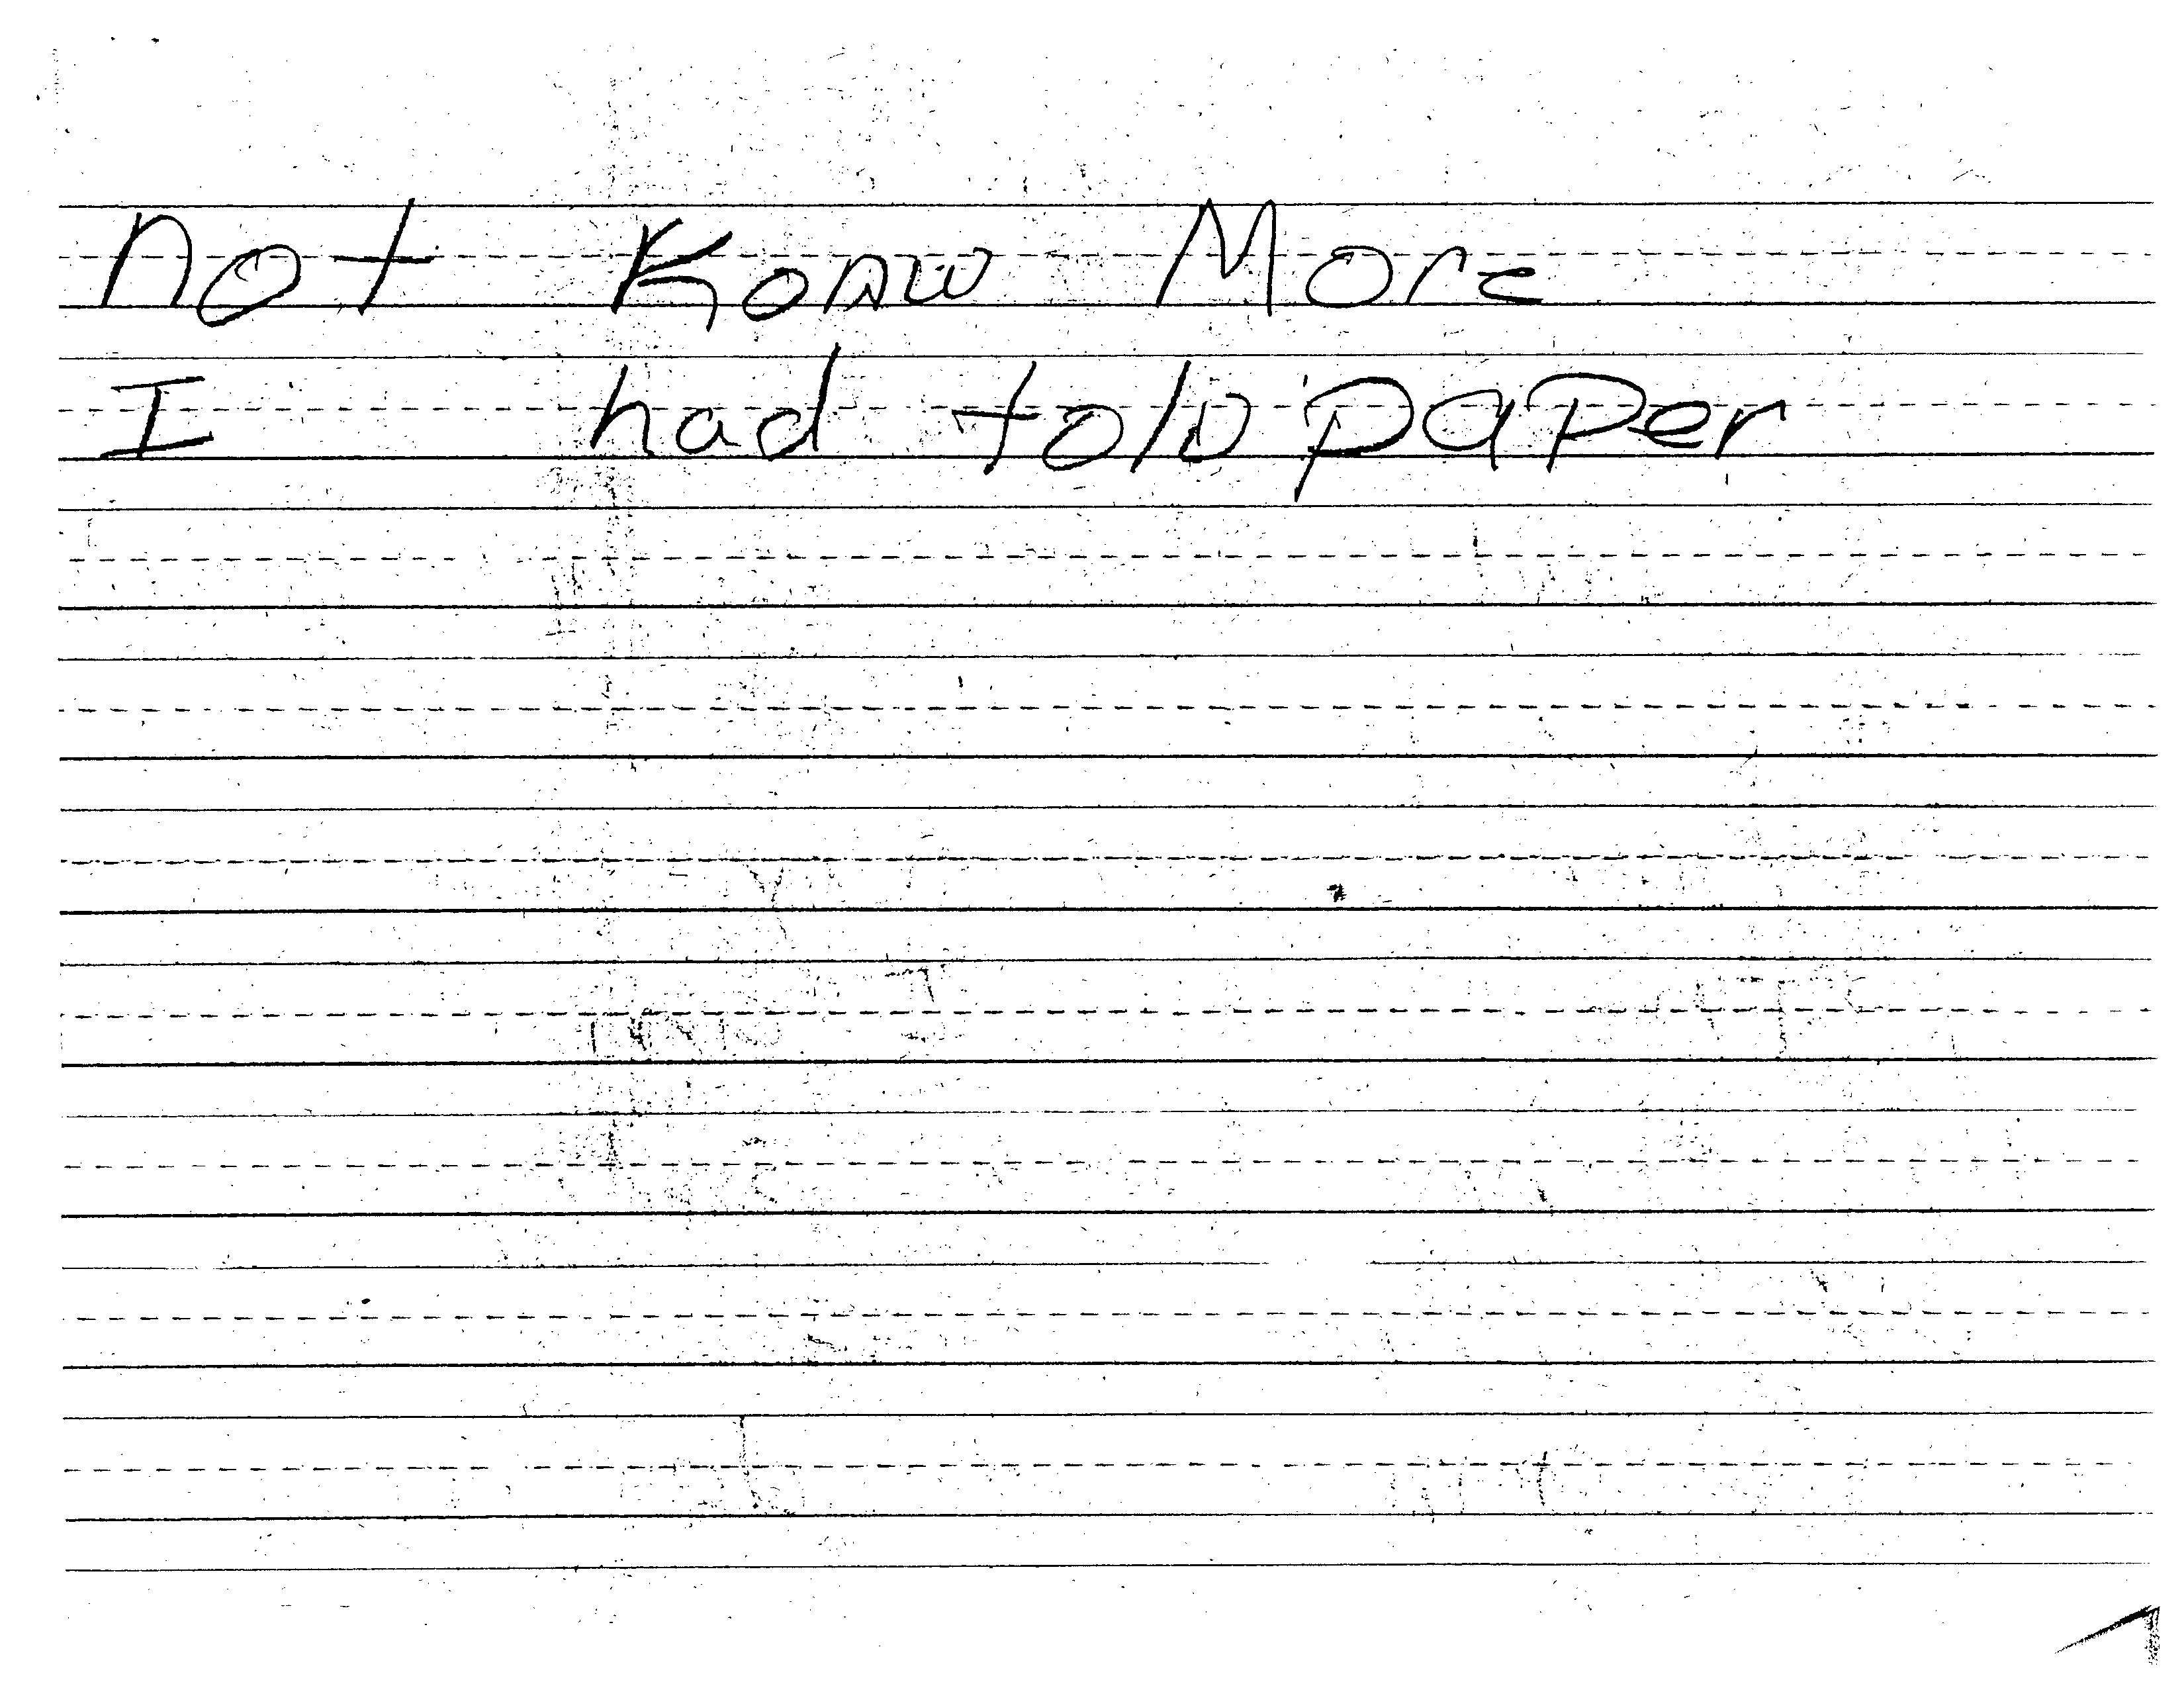 not Konw More
I had told paper